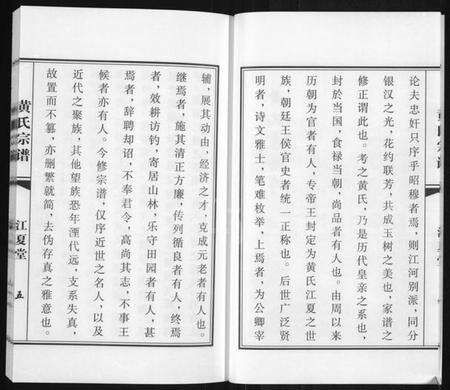 论夫忠奸只序乎昭穆者焉，则江河别派，同分
银汉之光，花约联芳，共成玉树之美也，家谱之
修正谓此也。考之黄氏，乃是历代皇亲之系也，
封於当国，食禄当朝，尚品者有人也。由周以来
历朝为官者有人，专帝王封定为黄氏江夏之世
族，朝廷王侯官史者统一正称也。后世广泛贤
明者，诗文雅士，笔难枚举，上焉者，为公卿宰
辅，展其动由，经济之才，克成元老者有人也。
继焉者，施其清正方廉，传列循良者有人，终焉
者，效耕访钓，寄居山林，乐守田园者有人，甚
焉者，辞聘却诏，不奉君令，高尚其志，不事王
候者亦有人。今修宗谱，仅序近世之名人，以及
近代之聚族，其他望族恐年湮代远，支系失真，
故置而不篡，亦删繁就简，去伪存真之雅意也。
黄氏宗谱
江夏堂
五